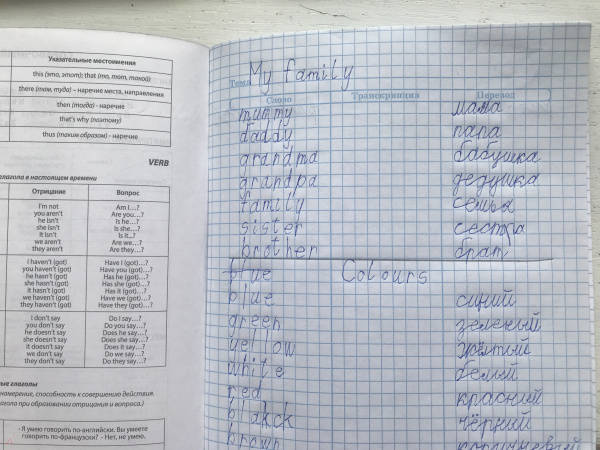 Указательные местоимения
this (это, этот); that (то, тот, такой)
there (там, туда) - наречие места, направления
then (тогда) - наречие
that's why (поэтому)
thus (таким образом) - наречие
VERB
глагола в настоящем времени
Отрицание Вопрос
I'm not Am I…?
you aren't Are you…?
he isn't Is he…?
she isn't Is she…?
it isn't Is it…?
we aren't Are we…?
they aren't Are they…?
I haven't (got) Have I (got)…?
you haven't (got) Have you (got)…?
he hasn't (got) Has he (got)…?
she hasn't (got) Has she (got)…?
it hasn't (got) Has it (got)…?
we haven't (got) Have we (got)…?
they haven't (got) Have they (got)…?
I don't say Do I say…?
you don't say Do you say…?
he doesn't say Does he say…?
she doesn't say Does she say…?
it doesn't say Does it say…?
we don't say Do we say…?
they don't say Do they say…?
ные глаголы
намерение, способность к совершению действия.
глагола при образовании отрицания и вопроса.)
- Я умею говорить по-английски. Вы умеете
говорить по-французски? - Нет, не умею.
Тема My family
Слово Транскрипция Перевод
mummy мама
daddy папа
grandma бабушка
grandpa дедушка
family семья
sister сестра
brother брат
blue Colours
blue синий
green зеленый
yellow жёлтый
white белый
red красный
blakck чёрный
brown коричневый